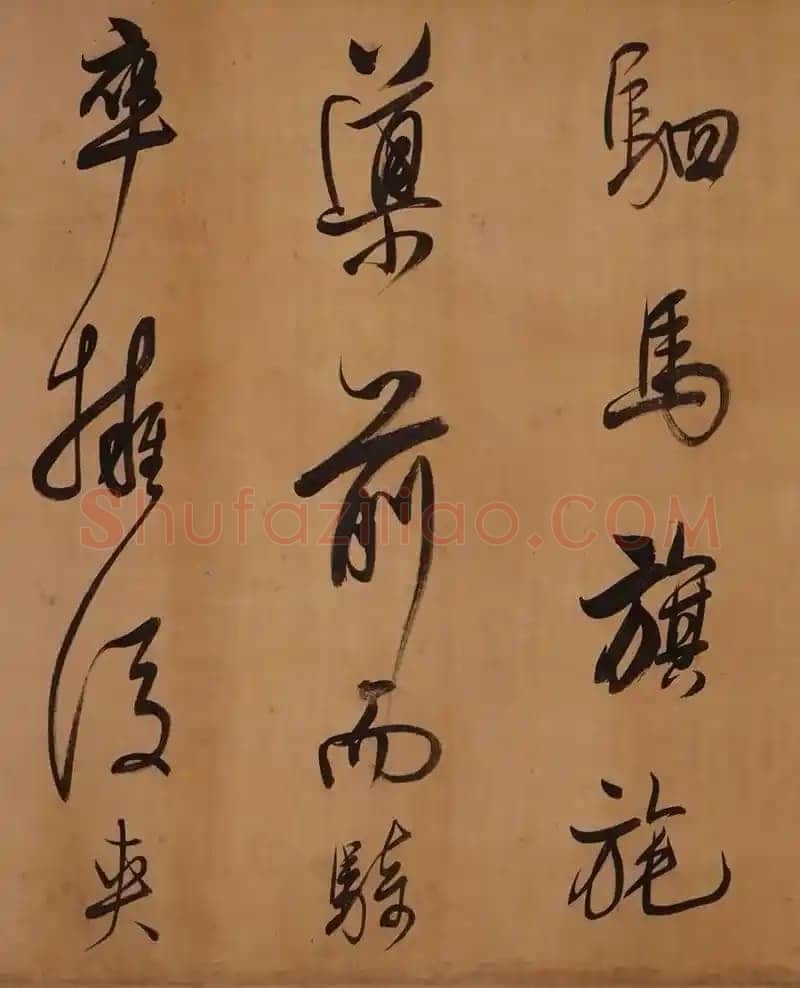 駟馬旗旄
導前而騎
卒擁後夾
Shufaziliao.COM